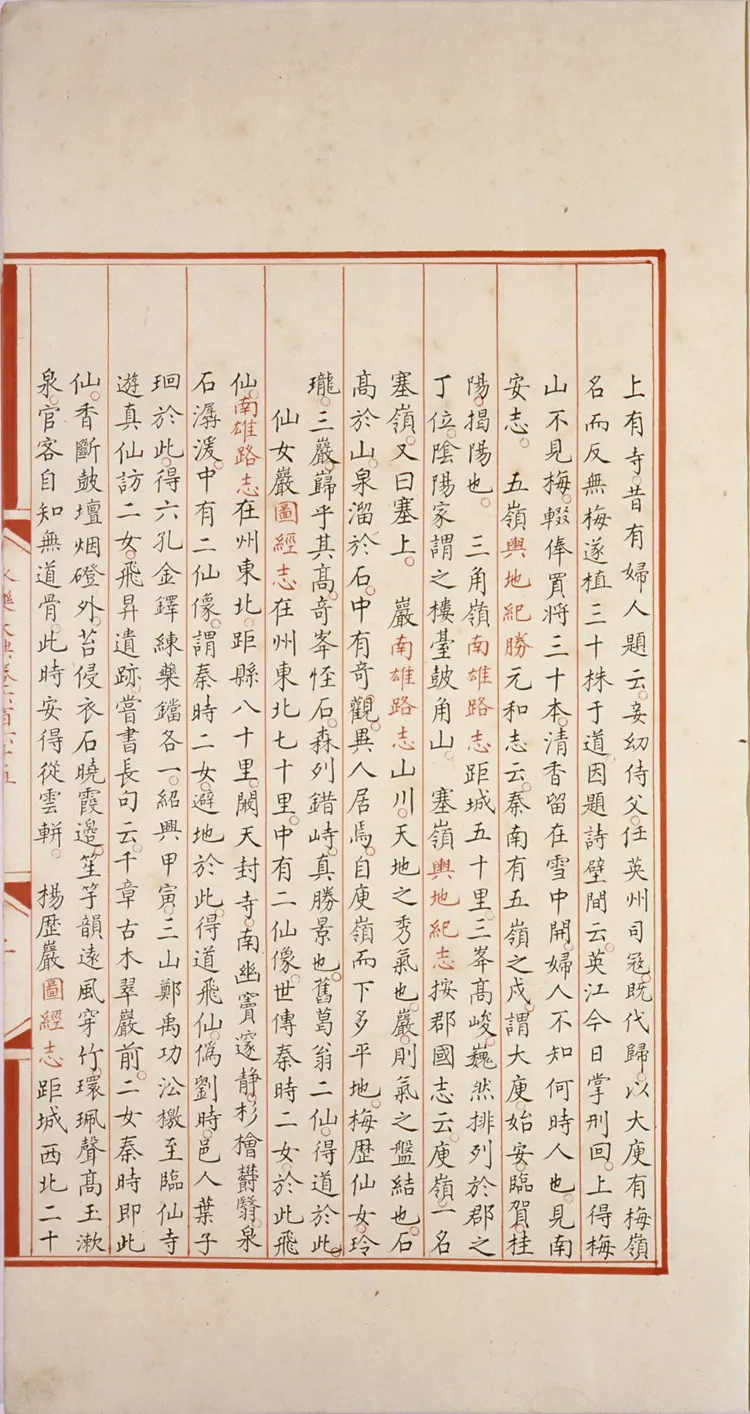 上有寺。昔有婦人題云。妾幼侍父。任英州司冦。旣代歸。以大庾有梅嶺
名而反無梅遂植三十株于道因題詩壁間云。英江今日掌刑回。上得梅
山不見梅。輟俸買將三十本。清香留在雪中開。婦人不知何時人也。見南
安志。 五嶺輿地紀勝元和志云。秦南有五嶺之戍。謂大庾。始安。臨賀。桂
陽。揭陽也。 三角嶺南雄路志距城五十里。三峯髙峻。巍然排列於郡之
丁位。陰陽家謂之樓臺鼓角山。 塞嶺輿地紀志按郡國志云。庾嶺。一名
塞嶺。又曰塞上。 巖南雄路志山川。天地之秀氣也。巖。則氣之盤結也。石
髙於山。泉溜於石。中有奇觀。異人居焉。自庾嶺而下多平地。梅歷仙女。玲
瓏。三巖。巋乎其髙。奇峯怪石。森列錯峙。真勝景也。舊葛翁二仙。得道於此。
仙女巖圖經志在州東北七十里。中有二仙像。世傳秦時二女。於此飛
仙。南雄路志在州東北。距縣八十里。闕天封寺。南幽竇邃靜。杉檜欝翳。泉
石潺湲。中有二仙像。謂秦時二女。避地於此。得道飛仙。僞劉時。邑人葉子
珇於此。得六孔金鐸練藥鐺各一。紹興甲寅。三山鄭禹功㳂檄至臨仙寺
遊真仙訪二女。飛昇遺跡。嘗書長句云。千章古木翠巖前。二女秦時即此
仙。香斷皷壇烟磴外。苔侵衣石曉霞邊。笙竽韻遠風穿竹。環珮聲髙玉漱
泉。官客自知無道骨。此時安得從雲軿。 楊歷巖圖經志距城西北二十
永樂大典卷六百六十五